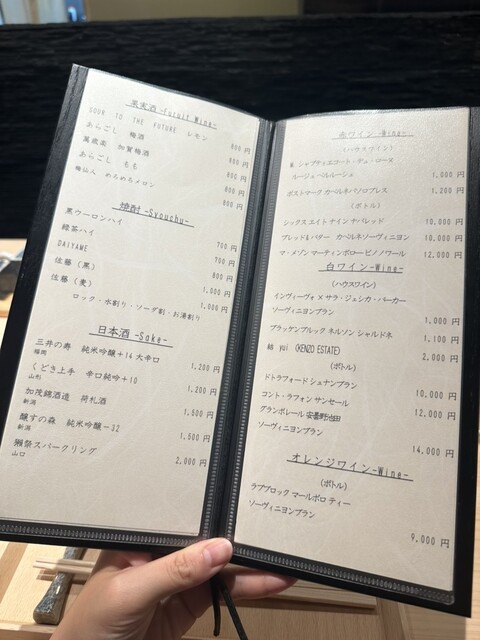 果実酒 -Furuit Wine-
SOUR TO THE FUTURE レモン 800 円
あらごし 梅酒 800 円
萬歳楽 加賀梅酒 800 円
あらごし もも 800 円
梅仙人 めろめろメロン 800 円
焼酎 -Syouchu-
黒ウーロンハイ 700 円
緑茶ハイ 700 円
DAIYAME 800 円
佐藤 (黒) 1,000 円
佐藤 (麦) 1,000 円
ロック・水割り・ソーダ割・お湯割り
日本酒 -Sake-
三井の寿 純米吟醸+14 大辛口 1,200 円
福岡
くどき上手 辛口純吟+10 1,200 円
山形
加茂錦酒造 荷札酒 1,500 円
新潟
醸すの森 純米吟醸-32 1,500 円
新潟
獺祭スパークリング 2,000 円
山口
赤ワイン -Wine-
(ハウスワイン)
M シャプティエコート・デュ・ローヌ
ルージュ ベルルーシュ 1,000 円
ポストマーク カベルネ パソロブレス 1,200 円
(ボトル)
シックス エイト ナイン ナパ レッド 10,000 円
ブレッド&バター カベルネ ソーヴィニヨン 10,000 円
マ・メゾン マーティンボロー ピノノワール 12,000 円
白ワイン -Wine-
(ハウスワイン)
インヴィーヴォ×サラ・ジェシカ・パーカー
ソーヴィニヨンブラン 1,000 円
ブラッケンブルック ネルソン シャルドネ 1,100 円
結 yui (KENZO ESTATE) 2,000 円
(ボトル)
ドトラフォード シュナンブラン 10,000 円
コント・ラフォン サンセール 12,000 円
グランポレール 安曇野池田
ソーヴィニヨンブラン 14,000 円
オレンジワイン -Wine-
(ボトル)
ラブブロック マールボロ ティー
ソーヴィニヨンブラン 9,000 円